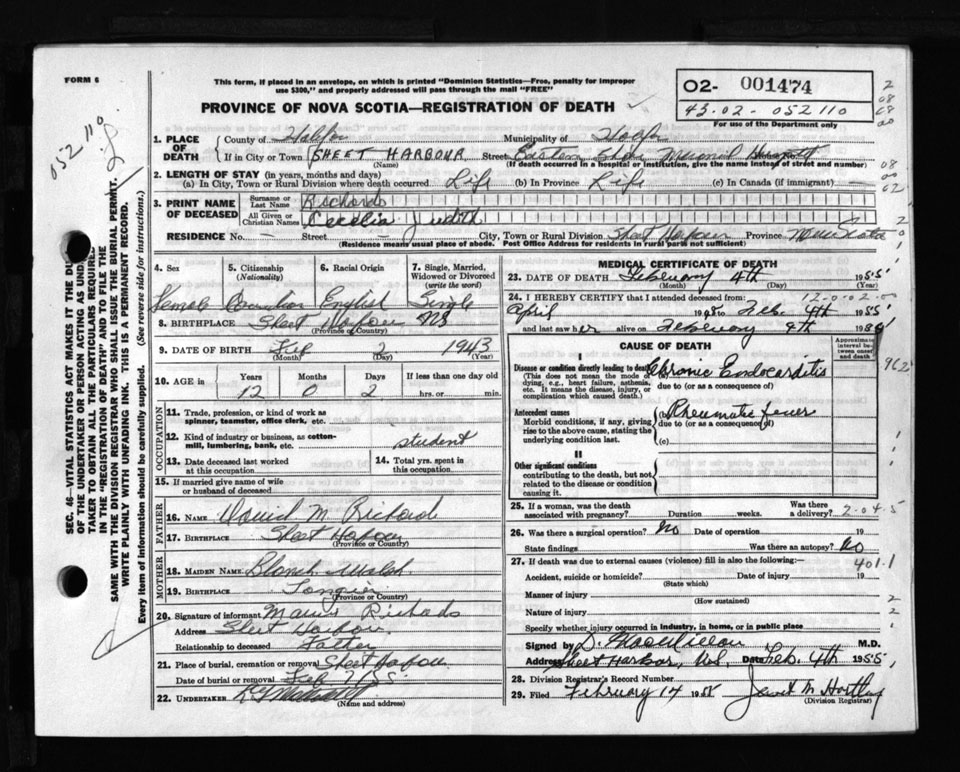 FORM 6
This form, if placed in an envelope, on which is printed "Dominion Statistics—Free, penalty for improper
use $300," and properly addressed will pass through the mail "FREE"
PROVINCE OF NOVA SCOTIA—REGISTRATION OF DEATH
02- 001474
43-02-052110
For use of the Department only
052110
SEC. 46—VITAL STATISTICS ACT MAKES IT THE DU
OF THE UNDERTAKER OR PERSON ACTING AS UND
TAKER TO OBTAIN ALL THE PARTICULARS REQUIRED
IN THE "REGISTRATION OF DEATH" AND TO FILE THE
SAME WITH THE DIVISION REGISTRAR WHO SHALL ISSUE THE BURIAL PERMIT.
WRITE PLAINLY WITH UNFADING INK. THIS IS A PERMANENT RECORD.
Every item of information should be carefully supplied. (See reverse side for instructions.)
1. PLACE OF DEATH County of Halifax Municipality of Halifax
If in City or Town SHEET HARBOUR Street Eastern Shore Memorial
(Name) (If death occurred in hospital or institution, give the name instead of street and number)
2. LENGTH OF STAY (in years, months and days)
(a) In City, Town or Rural Division where death occurred Life (b) In Province Life (c) In Canada (if immigrant) —
3. PRINT NAME OF DECEASED Surname or Last Name Richards
All Given or Christian Names Cecelia Judith
RESIDENCE No. — Street — City, Town or Rural Division Sheet Harbour Province Nova Scotia
(Residence means usual place of abode. Post Office Address for residents in rural parts not sufficient)
4. Sex 5. Citizenship (Nationality) 6. Racial Origin 7. Single, Married, Widowed or Divorced (write the word)
Female Canadian English Single
8. BIRTHPLACE Sheet Harbour NS
(Province or Country)
9. DATE OF BIRTH Feb 2 1943
(Month) (Day) (Year)
10. AGE in Years Months Days If less than one day old
12 0 2 hrs. or min.
OCCUPATION
11. Trade, profession, or kind of work as spinner, teamster, office clerk, etc.
12. Kind of industry or business, as cotton-mill, lumbering, bank, etc. student
13. Date deceased last worked at this occupation 14. Total yrs. spent in this occupation
15. If married give name of wife or husband of deceased
FATHER
16. NAME M. Richards
17. BIRTHPLACE Sheet Harbour
(Province or Country)
MOTHER
18. MAIDEN NAME Blanch Walsh
19. BIRTHPLACE Tangier
(Province or Country)
20. Signature of informant Richards
Address Sheet Harbour
Relationship to deceased Father
21. Place of burial, cremation or removal Sheet Harbour
Date of burial or removal Feb 7/55
22. UNDERTAKER
(Name and address)
MEDICAL CERTIFICATE OF DEATH
23. DATE OF DEATH February 4th 1955
(Month) (Day)
24. I HEREBY CERTIFY that I attended deceased from:
April 19 to Feb. 4th 1955
and last saw her alive on February 4th 19
CAUSE OF DEATH
Approximate interval between onset and death
I
Disease or condition directly leading to death
(This does not mean the mode of dying, e.g., heart failure, asthenia, etc. It means the disease, injury, or complication which caused death.)
Chronic Endocarditis
due to (or as a consequence of)
Antecedent causes
Morbid conditions, if any, giving rise to the above cause, stating the underlying condition last.
(b) Rheumatic fever
due to (or as a consequence of)
(c)
II
Other significant conditions
contributing to the death, but not related to the disease or condition causing it.
25. If a woman, was the death associated with pregnancy? Duration weeks. Was there a delivery? 2-04-5
26. Was there a surgical operation? No Date of operation 19
State findings Was there an autopsy? No
27. If death was due to external causes (violence) fill in also the following: 401.1
Accident, suicide or homicide? Date of injury 19
(State which)
Manner of injury
(How sustained)
Nature of injury
Specify whether injury occurred in industry, in home, or in public place
Signed by M.D.
Address Sheet Harbor, N.S. Date Feb. 4th 1955
28. Division Registrar's Record Number
29. Filed February 14 19 M. Hartling
(Division Registrar)